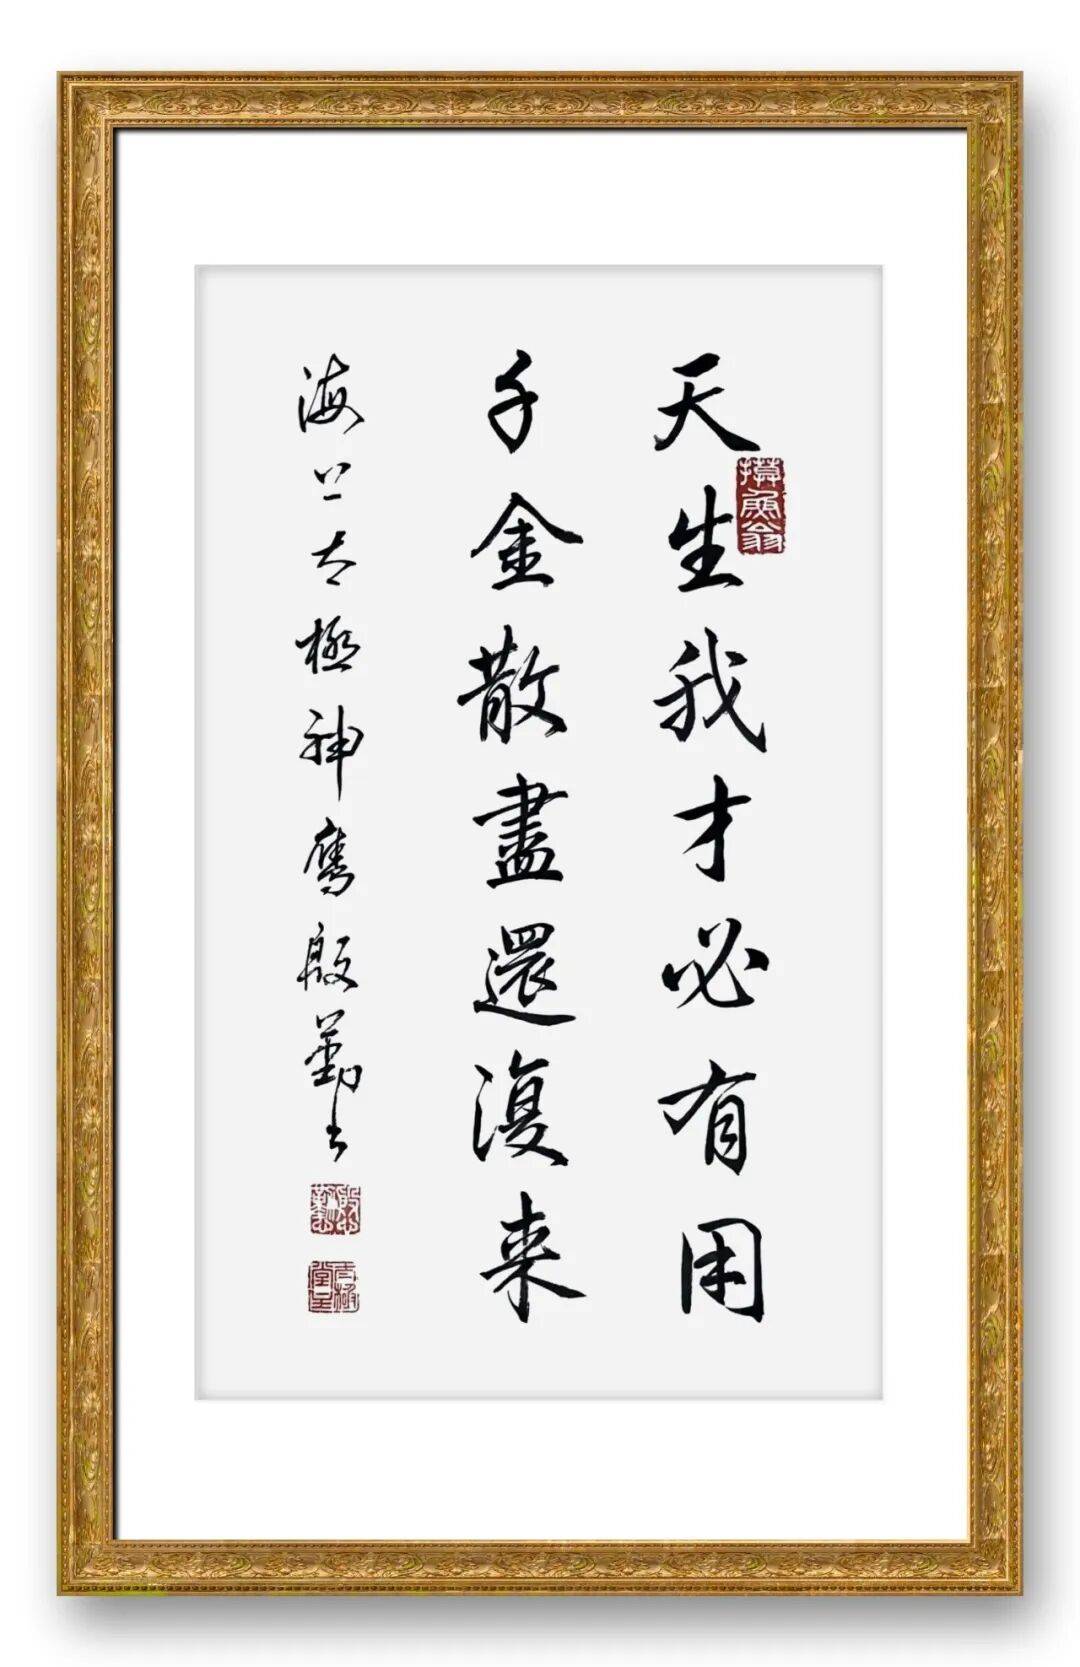 天生我才必有用
千金散盡還復来
海上太極神鹰殷勤书